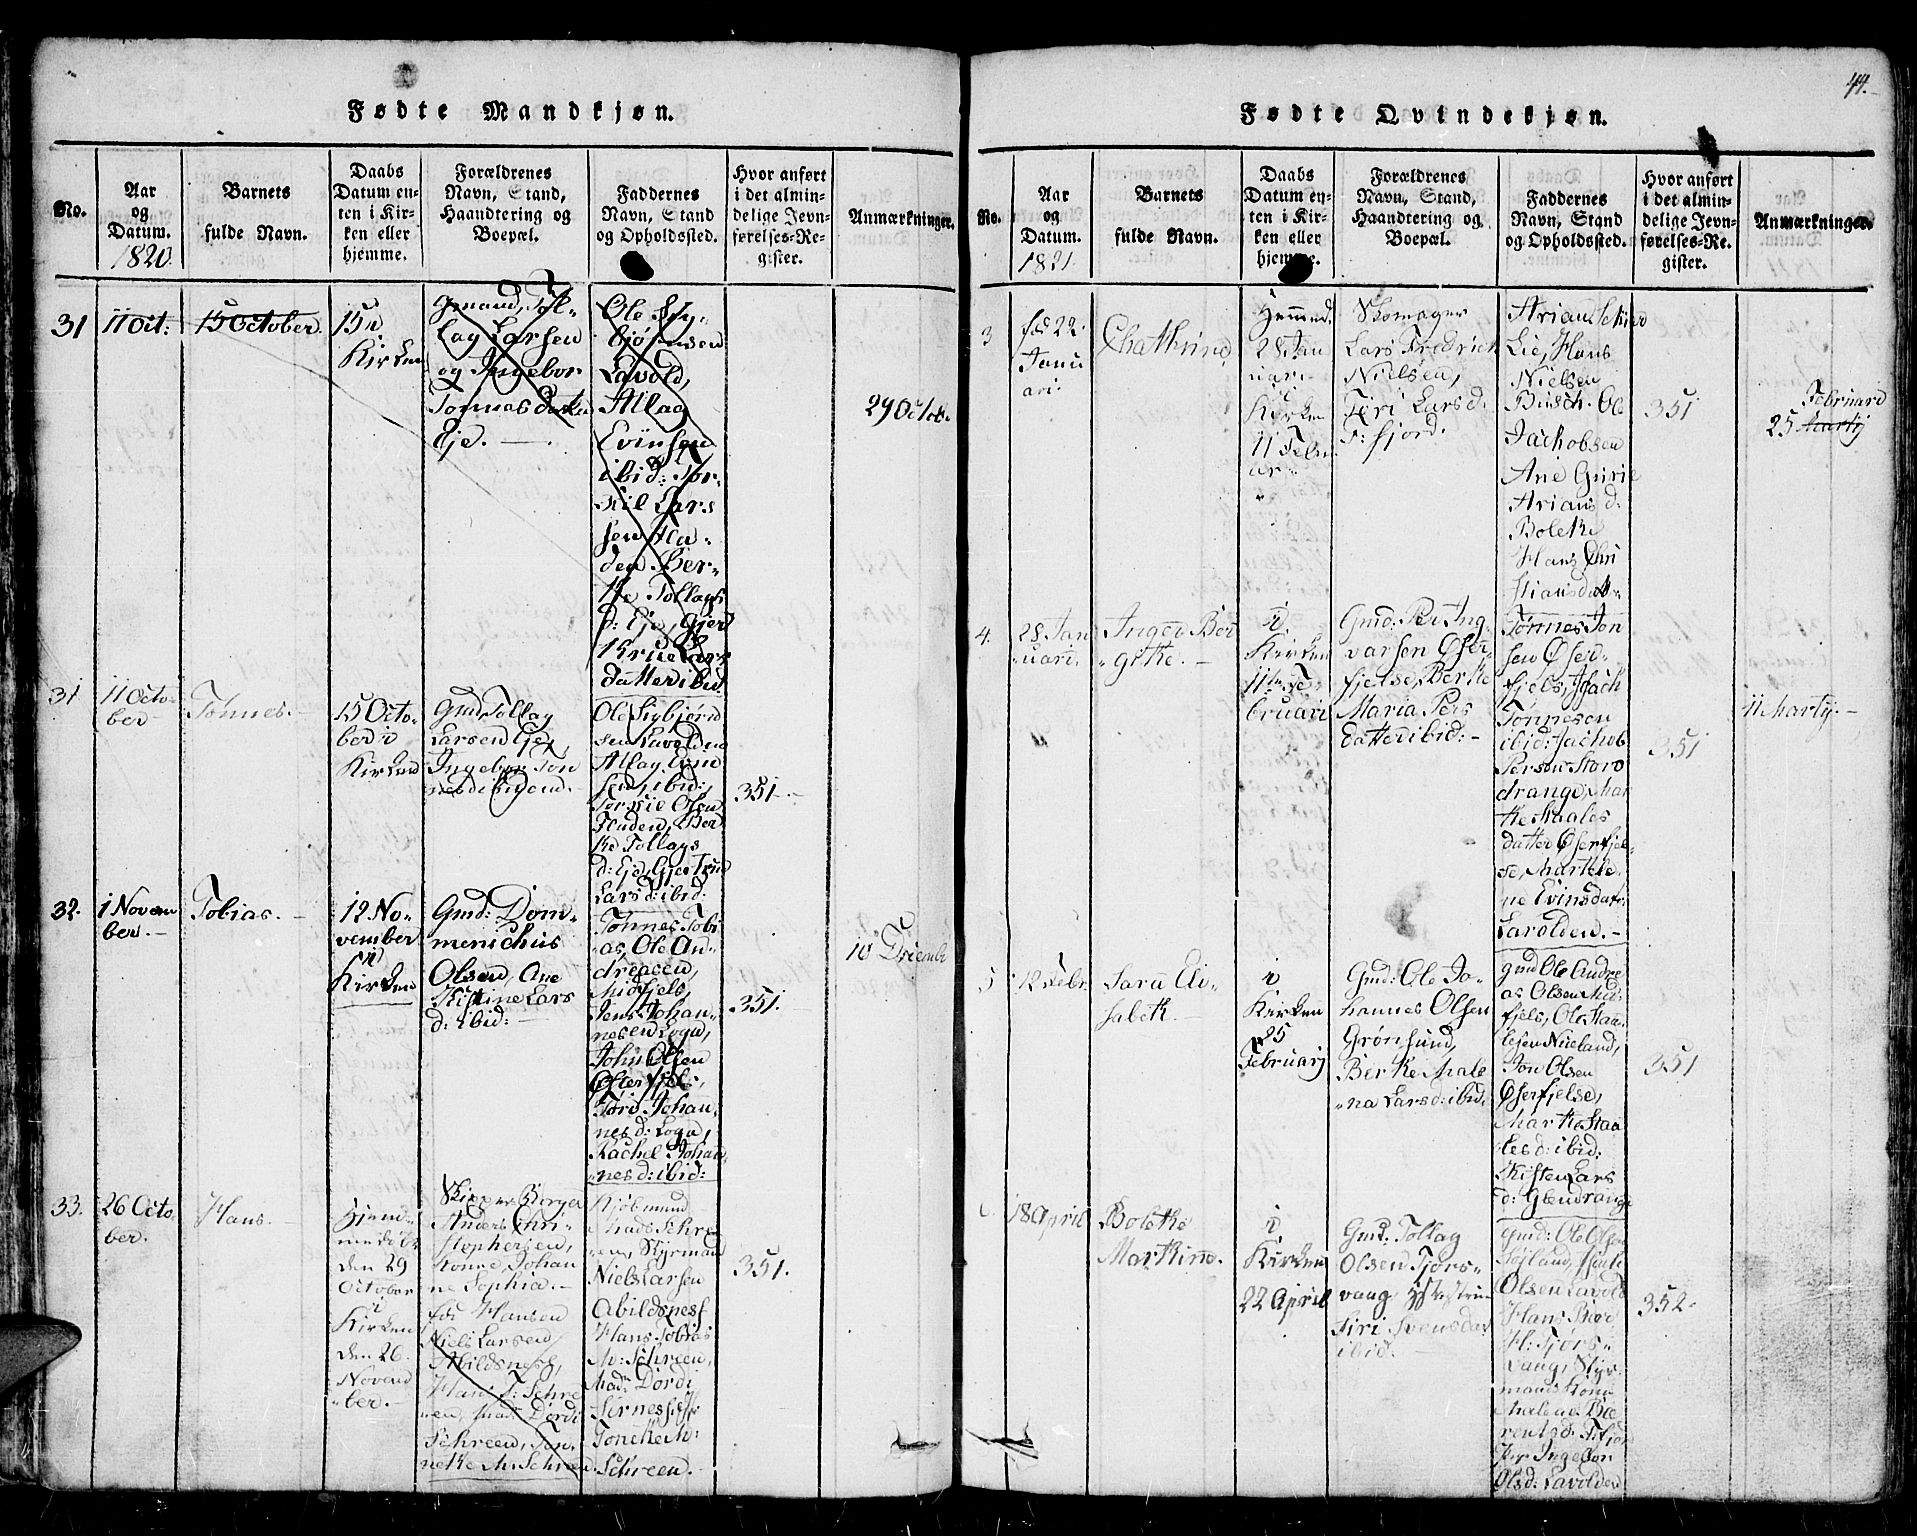 44.
Fødte Mandkjøn.
No.
Aar
og
Datum.
1820.
Barnets
fulde Navn.
Daabs
Datum en-
ten i Kir-
ken eller
hjemme.
Forældrenes
Navn, Stand,
Haandtering og
Boepæl.
Faddernes
Navn, Stand
og Opholdssted.
Hvor anført
i det almin-
delige Jevn-
førelses-Re-
gister.
Anmærkninger.
31
11 Oct:
15 October.
15 i
Kirken
Gmand, Tol-
lag Larsen
og Ingebor
Tonnes datter
Eje.
Ole Sig-
bjørnsen
Lavold,
Atlag
Evinsen
ibid: Tor-
kil Lars
sen Fla-
den Ber-
the Tollags
d: Eje, Gjer
Lars
datter ibid
29 Octob.
31
11 Octo-
ber
Tønnes.
15 Octo-
ber i
Kirken
Gmd Tollag
Larsen Eje,
Ingebor Ton
nesd
Ole Sigbjørn
sen Lavolden
Atlag Evind
sen, ibid:,
Torkil Olsen
Fladen, Ber
the Tollags
d: Eje, Gjertrud
Lars d: ibid:
351.
32.
1 Novem
ber.
Tobias.
12 No-
vember
i
Kirken
Gmd: Dom-
menichus
Olsen, Ane
Kistine Lars
d: ibid:
Tønnes Tobi
as, Ole An-
dreasen,
Midfjels,
Jens Johan-
nesen Logn,
John Olsen
Østerfjels,
Tøre Johan-
nes d: Logn,
Rachel Johan
nes d: ibid:
351.
33.
26 Octo-
ber.
Hans.
Hjem-
medøbt
den 29
October
i
Kirken
den 26
Novem
ber.
Skipper Borger
Anders Chri-
stophersen,
Johan
ne Sophia.
Hansen
Niels Larsen
Abildsnes,
Hans T: Schre
en, Mad: Dordi
Schreen, Ton-
neke M: Schreen
Kjøbmand
Mads Schre
en, Styrmand
Niels Larsen
Abildsnes
Hans Tobias
M: Schreen,
Mad: Dordi
Toneke M:
Schreen.
351.
Fødte Qvindekjøn.
No.
Aar
og
Datum.
1821.
Barnets
fulde Navn.
Daabs
Datum en-
ten i Kir-
ken eller
hjemme.
Forældrenes
Navn, Stand,
Haandtering og
Boepæl.
Faddernes
Navn, Stand
og Opholdssted.
Hvor anført
i det almin-
delige Jevn-
førelses-Re-
gister.
Anmærkninger.
3
fød 22
Janu
ari
Chathrine
Hemmed.
28 Jan
uari
i
Kirken
11 Febru
ar
Skomager
Lars Fredrich
Nielsen,
Siri Lars d.
F: fjord.
Arian
Lie, Hans
Nielsen
Busch. Ole
Jachobsen
Ane Gurie
Arians d:
Bolethe
Hans Chri
stiansdatr
351
Februare
25 Martij
4.
28 Jan
uari.
Inger Ber
githe.
i
Kirken
11te Fe-
bruari
Gmd: Per Ing-
varsen Øster-
fjelse, Berthe
Maria Pers
datter ibid:
Tønnes Jon
sen Øster-
fjels, Isach
Tønnesen
ibid: Jachob
Persen Store
drange, Mar
the Staales
datter Østerfjel-
se, Marthe
ne Evinsdatr:
Lavolden.
351
11 Martij.
5
12 Febr.
Sara Eli-
sabeth.
i
Kirken
25
Februarij
Gmd: Ole Jo-
hannes Olsen
Grønsund,
Berthe Male
na Lars d: ibid.
gmd Ole Andre
as Olsen Mid-
fjels, Ole Staa-
lesen Nieland,
Jon Olsen
Østerfjelse,
Marthe Staa
les d: ibid:
Kisten Lars
d: Glendrange
351
18 April
Bolethe
Marthine.
i
Kirken
22 April
Gmd: Tollag
Olsen Tjørs-
vaag
Siri Svensdat
ibid.
Gmd: Ole Olsen
Isach
Olsen Lavold
Hans
H: Tjørs-
vaag, Styr-
mands kone
Malene Be
rent d:
Ingebor
Ols d: Lavolden
352.